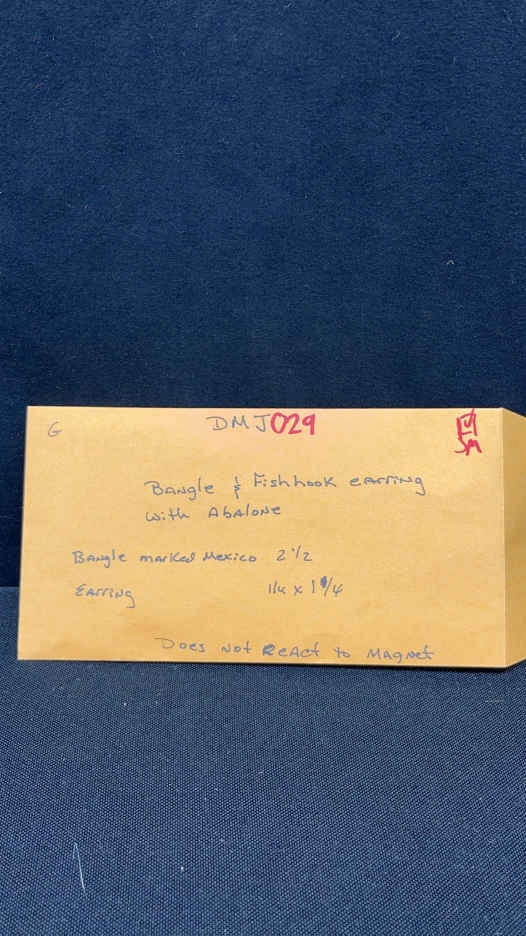 G DMJ029
Bangle & Fishhook earring
with Abalone
Bangle marked Mexico 2 1/2
Earring
Does not React to Magnet